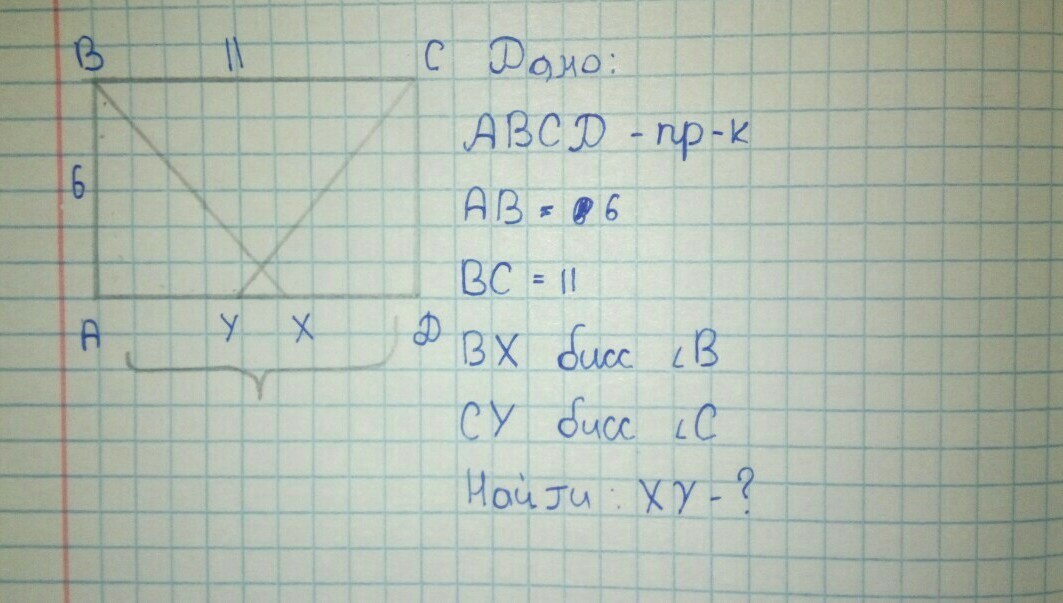 B 11 C
6
A Y X D
Дано:
ABCD - пр-к
AB = 6
BC = 11
BX бисс ∠B
CY бисс ∠C
Найти: XY - ?